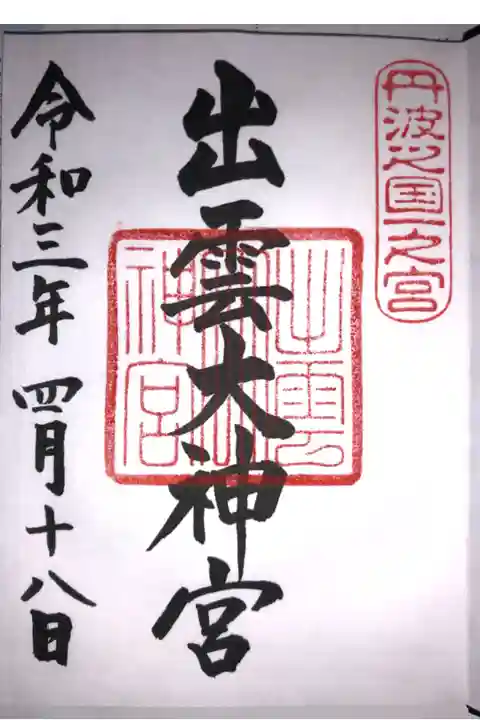 丹波之国一之宮
出雲大神宮
出雲大神宮
令和三年 四月十八日